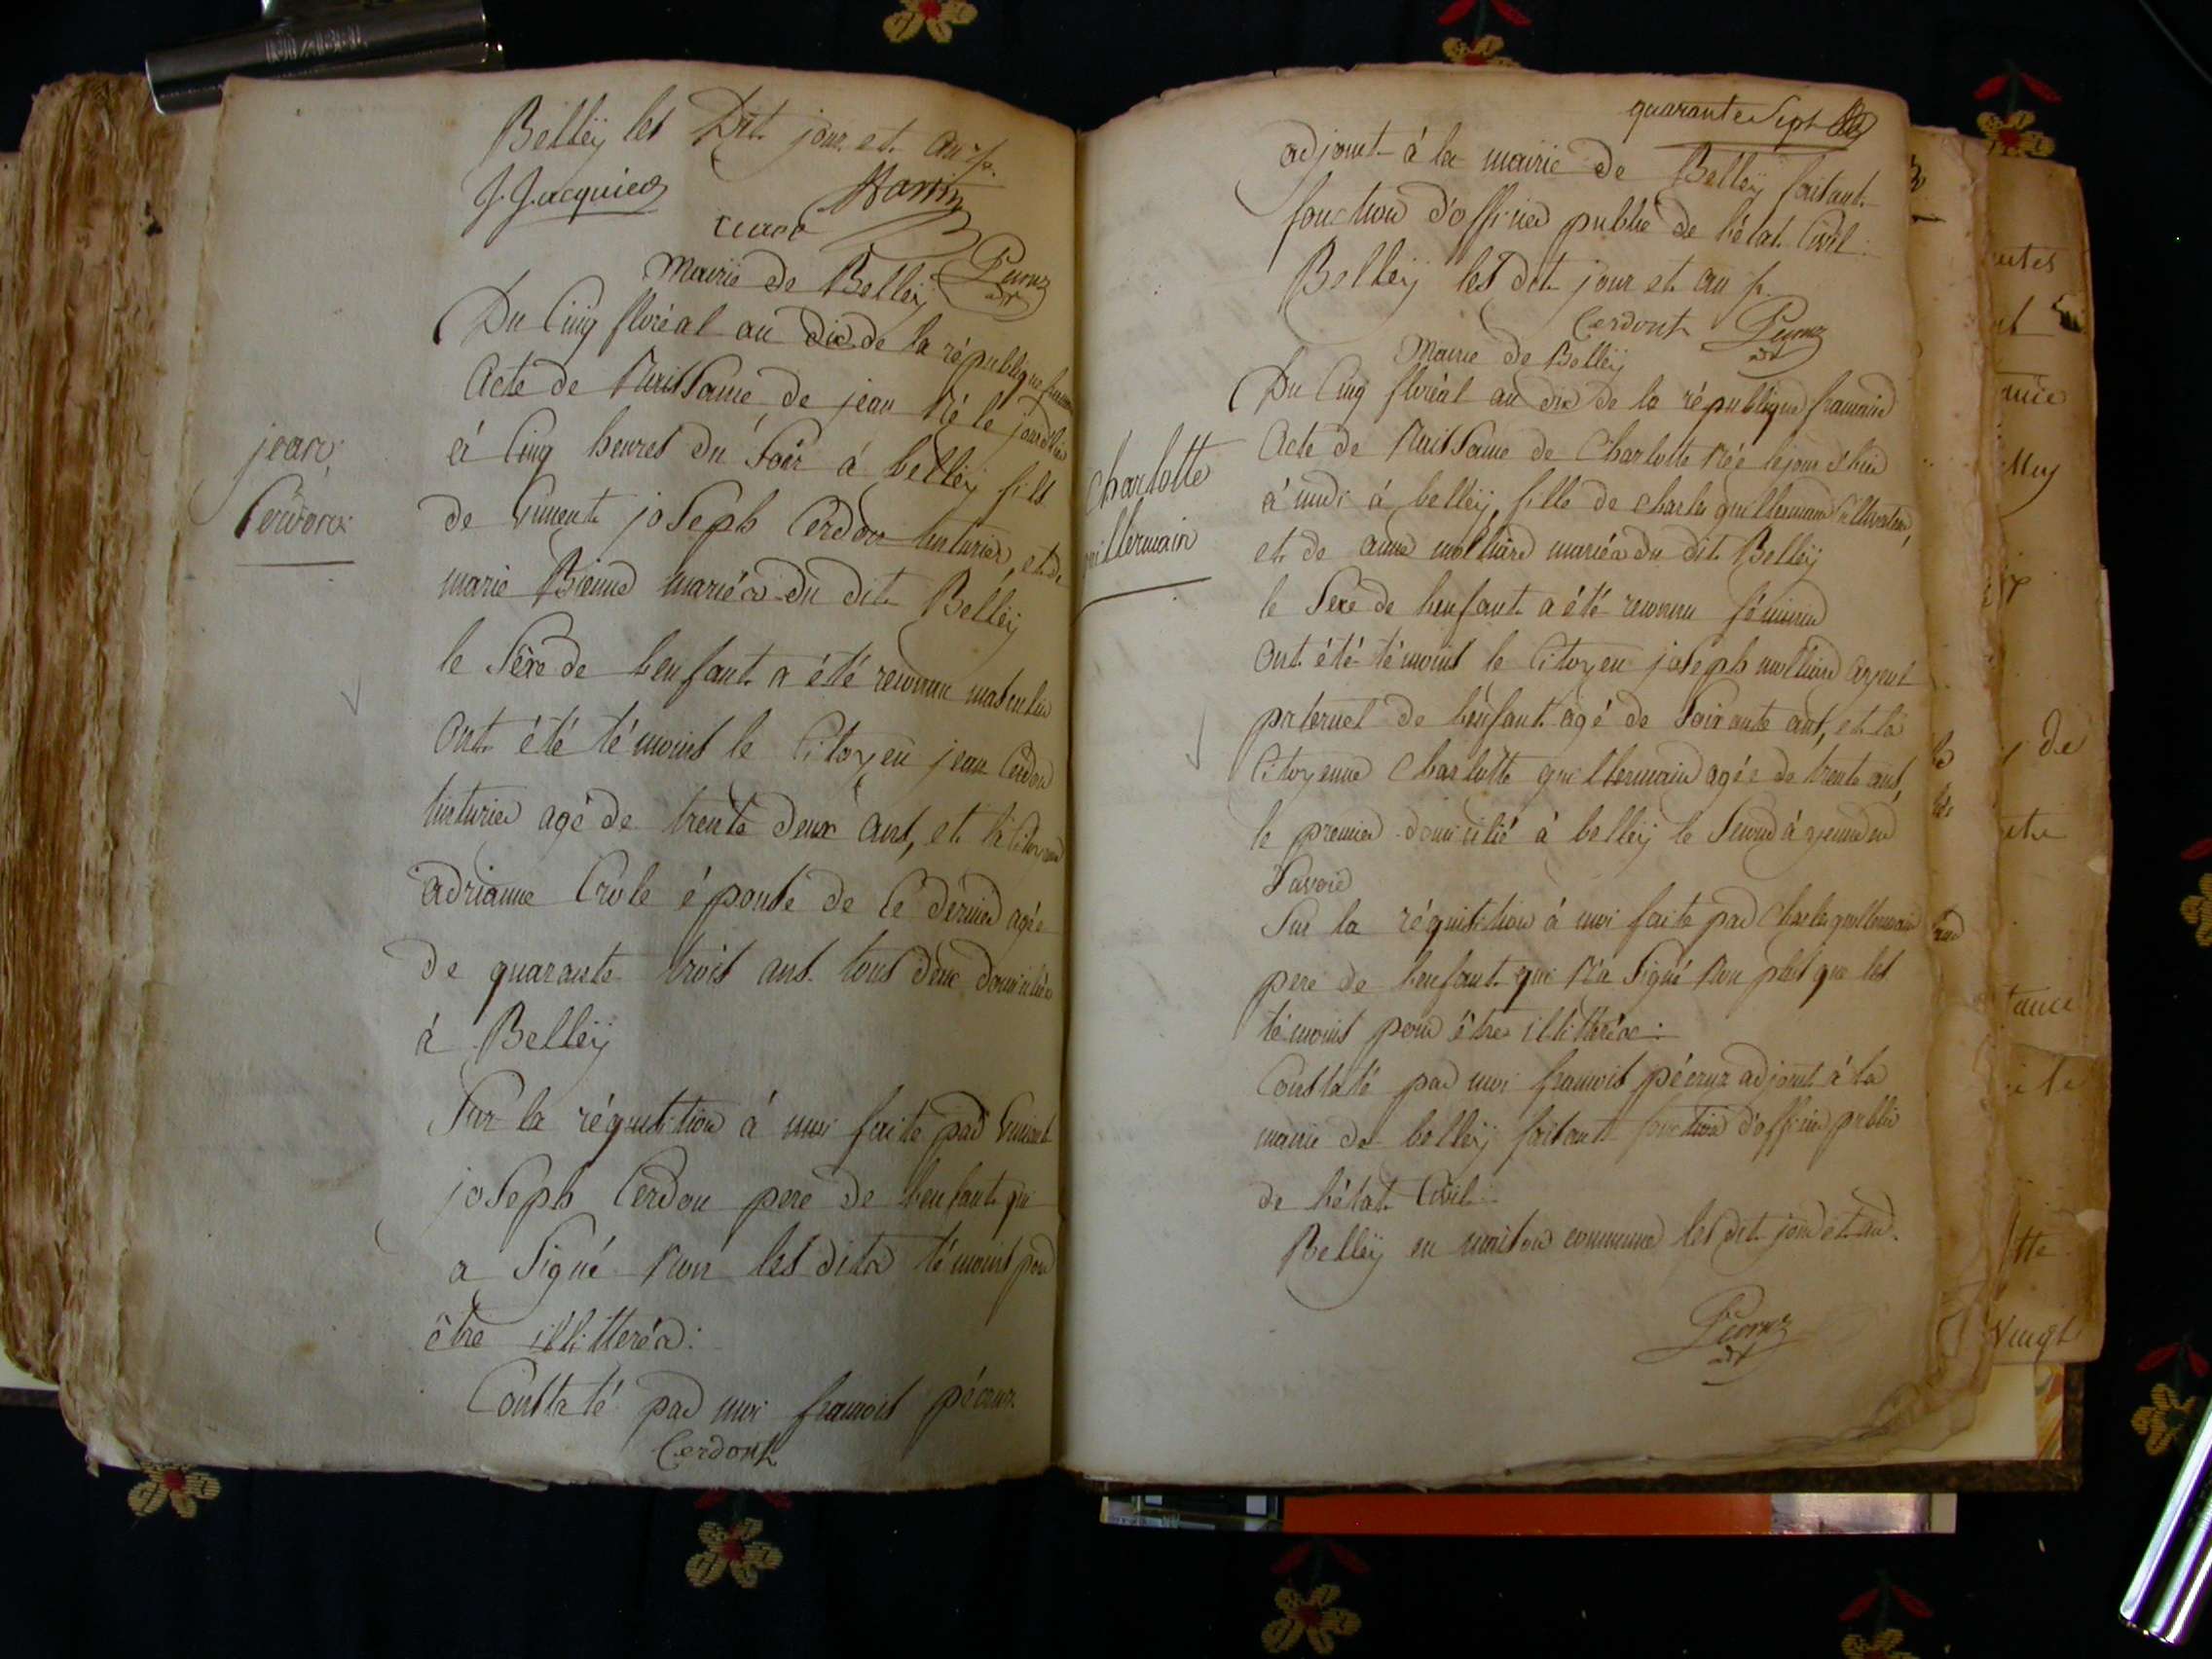 Belleÿ les Dit jour et an
J. Jacquier
Mairie de Belleÿ
Du Cinq floréal an dix de la république
Acte de Naissance de jean Né le jourd'hui
à Cinq heures du Soir à belleÿ fils
de Vincent joSeph Cerdon tinturier, et de
marie Bienne mariés du dit Belleÿ
le Sexe de l'enfant a été reconnu masculin
Ont été témoins le Citoyen jean Cerdon
tinturier agé de trente deux ans, et la Citoyenne
adrianne Crole épouse de Ce dernier agée
de quarante trois ans tous deux domiciliés
à Belleÿ
Sur la réquisition à moi faite par Vincent
joSeph Cerdon pere de l'enfant qui
a Signé Non les dits témoins pour
être illitterés:
Constaté par moi francois pécruz
Cerdont
jean
Cerdon
quarante Sept
adjoint à la mairie de Belleÿ faisant
fonction d'officier public de l'état Civil:
Belleÿ les dit jour et an
Cerdont
Mairie de Belleÿ
Du Cinq floréal an dix de la république francaise
Acte de Naissance de Charlotte Née le jour d'hui
à midi à belleÿ, fille de Charles guillermain Cultivateur,
et de anne molliard mariés du dit Belleÿ
le Sexe de l'enfant a été reconnu féminin
Ont été témoins le Citoyen joSeph molliard ayeul
paternel de l'enfant agé de Soixante ans, et la
Citoyenne Charlotte guillermain agée de trente ans,
le premier domicilié à belleÿ le Second à yenne en
Savoie
Sur la réquisition à moi faite par Charles guillermain
pere de l'enfant qui N'a Signé Non plus que les
témoins pour être illitterés:
Constaté par moi francois pécruz adjoint à la
mairie de belleÿ faisant fonction d'officier public
de l'état Civil:
Belleÿ en maison commune les dit jour et an.
Charlotte
guillermain